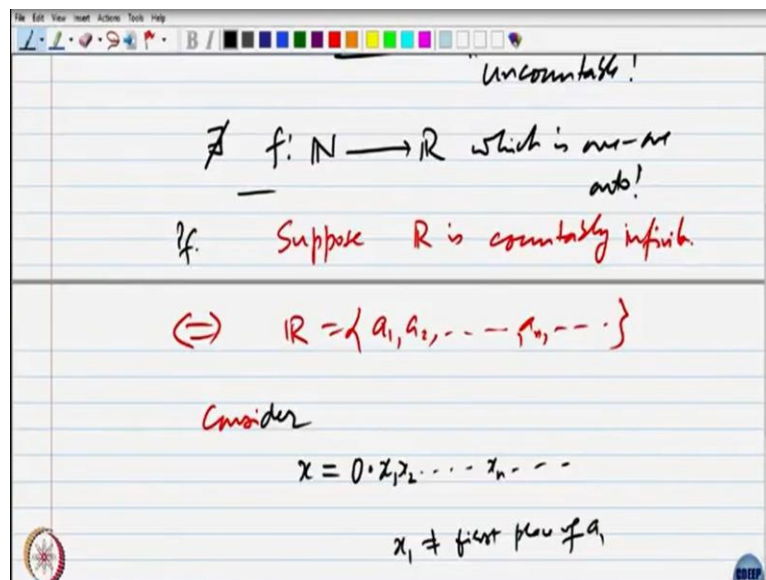 File Edit View Insert Actions Tools Help
B I
"Uncountable!
∄ f: ℕ ⟶ ℝ which is one-one
onto!
Pf. Suppose ℝ is countably infinite.
(⇔) ℝ = { a₁, a₂, ... --, aₙ, --- . }
Consider
x = 0·x₁x₂ .... xₙ . - -
x₁ ≠ first place of a₁
CDEEP